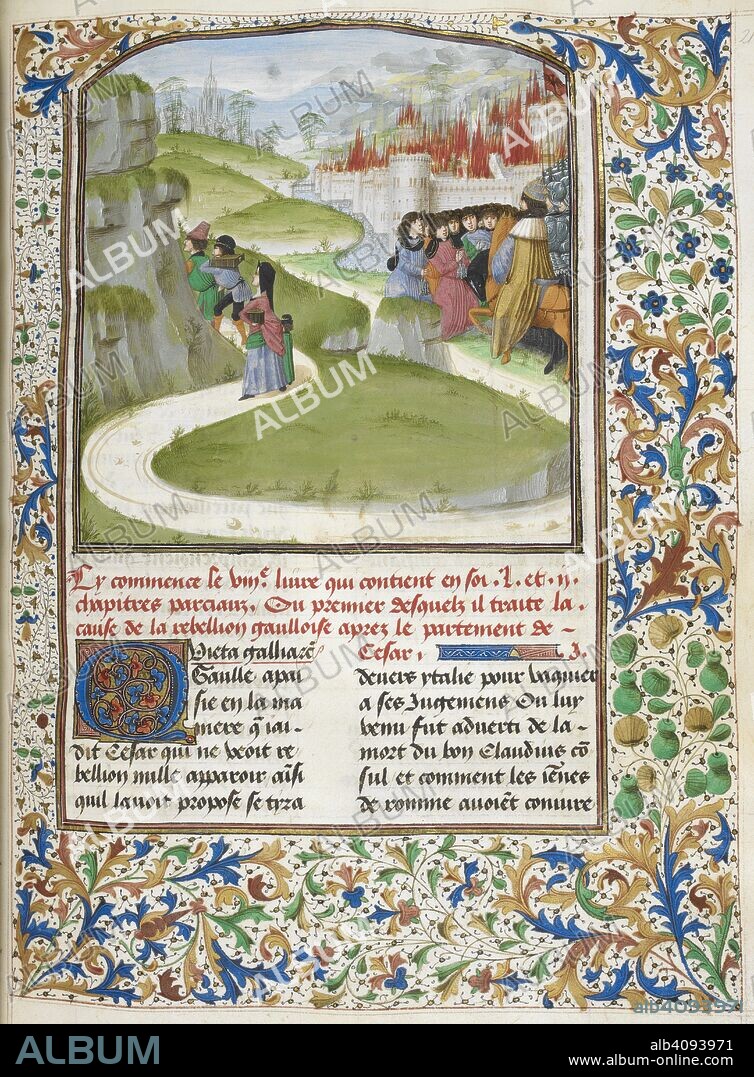 Cy commence le viiie. liure qui contient en soi .l. et .ij.
chapitres parciaux. Ou premier desquelz il traite la
cause de la rebellion gaulloise aprez le partement de
Cesar. .j.
Quieta gallia rē
Gaulle apai
sie en la ma
niere q̄ iai
dit Cesar qui ne veoit re
bellion nulle apparoir aīsi
quil lauoit propose se tyra
deuers ytalie pour vaquier
a ses Jugemens Ou luy
venu fut aduerti de la
mort du bon Claudius cō
sul et comment les iēnes
de romme auoiēt coniure
ALBUM
alb4093971
ALBUM
alb4093971
www.album-online.com